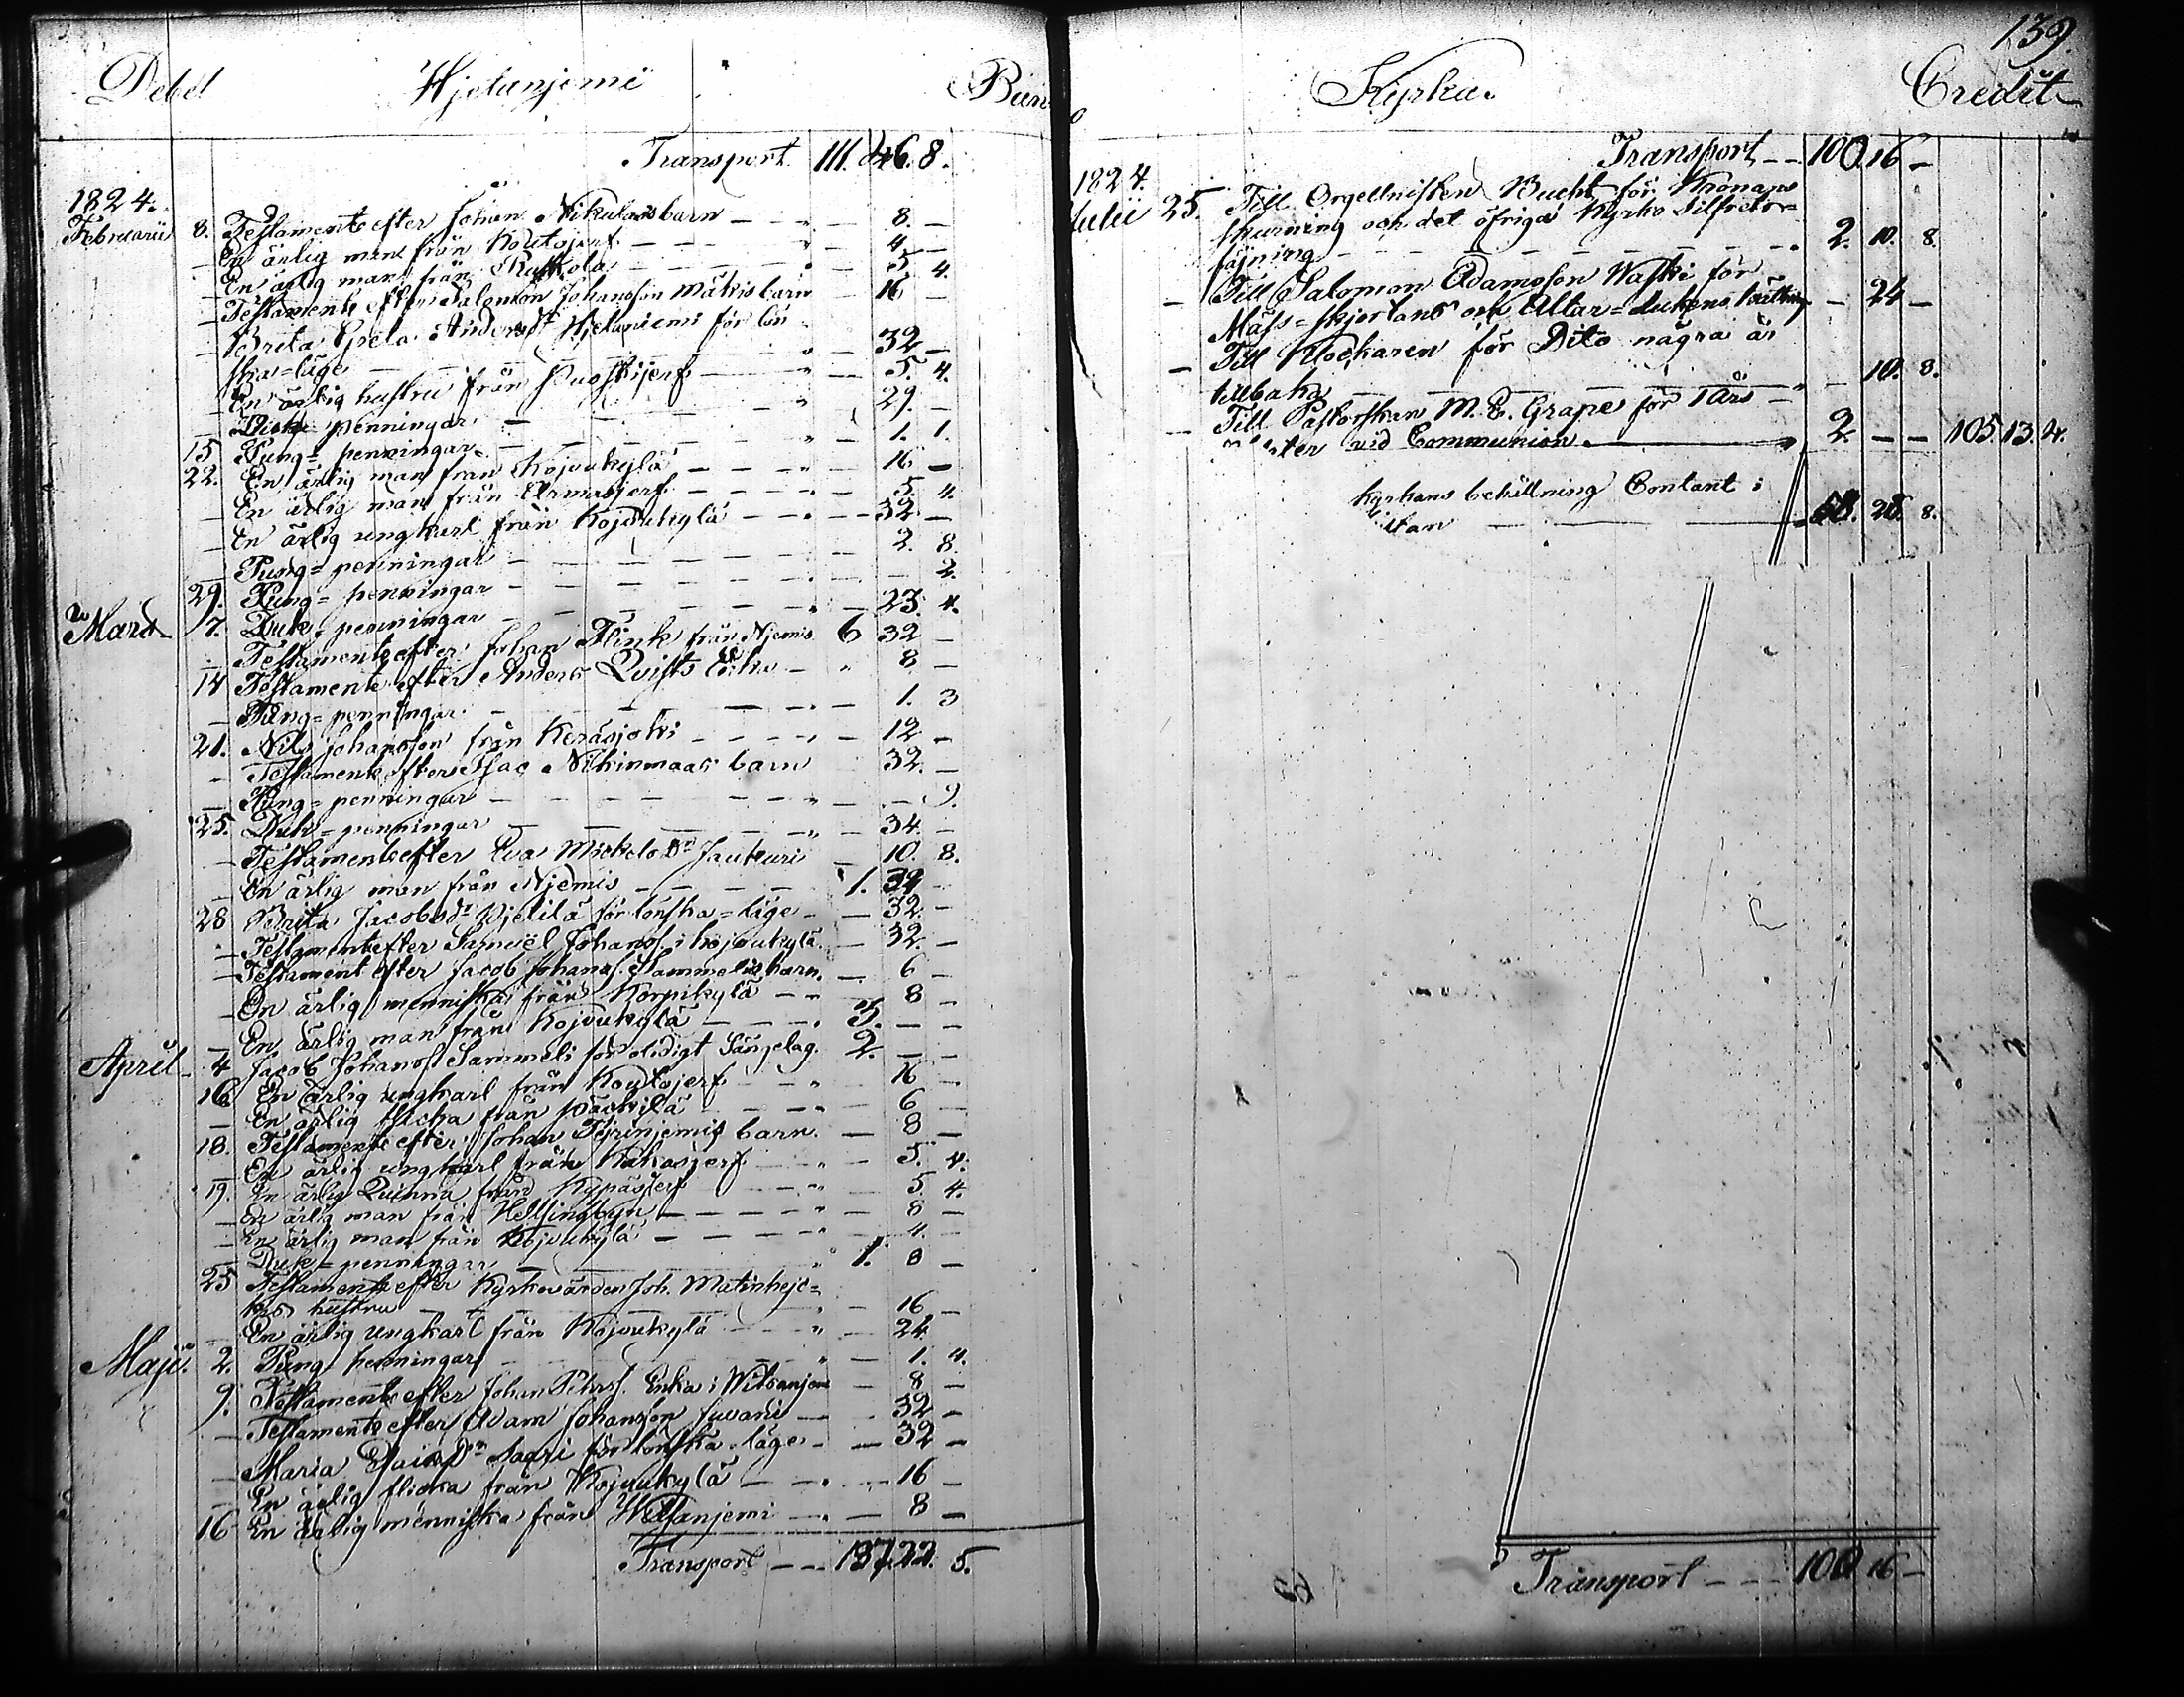 139.
Debet Hjetanjemi
Kyrka. Credit
Transport. 111. 46. 8.
1824.
Februarii 8. Testamente efter Johan Nikulas barn — 8. —
— En ärlig man från Koutojerf — 4 —
— En ärlig man från Ruskola — 5 4.
— Testamente efter Salomon Johansson Mäkis barn — 16 —
— Brita Greta Andersdr Hjetaniemi för lön
ska=läge — 32 —
— En ärlig hustru från Puostijerf — 5. 4.
— penningar — 29. —
15 Pung= penningar — 1. 1.
22. En ärlig man från Kojvukylä — 16 —
— En ärlig man från Armasjerf — 5. 4.
— En ärlig ungkarl från Kojvukylä — 32 —
— Pung= penningar — 2. 8.
29. Pung= penningar — 2.
Martii 7. Duk= penningar — 23. 4.
Testamente efter Johan Flink från Njemis 6 32 —
14 Testamente efter Anders Qvists — 8 —
— Pung= penningar. — 1. 3
21. Nils Johansson från Keräsjoki — 12 —
— Testamente efter Isac Nikinmaas barn 32. —
— Pung= penningar — 9.
25. Duk= penningar — 34 —
— Testamente efter Eva Mickelsdr Jauhuri — 10. 8.
— En ärlig man från Njemis — 1. 32 —
28 Brita Jacobsdr Pjetilä för lönska=läge — 32. —
— Testamente efter Samuel Johanss. i Kojvukylä — 32. —
— Testament efter Jacob Johanss. Sammelis barn. — 6 —
— En ärlig menniska från Korpikylä — 8 —
— En ärlig man från Kojvukylä — 3. — —
April 4 Jacob Johanss Sammeli för olidigt Sängelag. 2. — —
16 En ärlig ungkarl från Koutojerf — 16 —
— En ärlig flicka från Päckilä — 6 —
18. Testamente efter Johan barn. — 8 —
— En ärlig ungkarl från Kukasjerf — 5. 4.
19. En ärlig Quinna från Kypäsjerf — 5 4.
— En ärlig man från Hellsingbyn — 8 —
— En ärlig man från Kojvukylä — 4. —
— Duk= penningar — 1. 8 —
25 Testamente efter Kyrkovärden Joh. Matinheje=
kis hustru — 16 —
— En ärlig ungkarl från Kojvukylä — 24
Maji. 2. Pung penningar — 1. 4.
9. Testamente efter Johan Pehrss. Enka i Witsanjemi — 8 —
— Testamente efter Adam Johansson Juvani — 32 —
— Maria Esaiædr Saari för lönska läge — 32 —
— En ärlig flicka från Kojvukylä — 16 —
16 En ärlig menniska från Witsanjemi — 8 —
Transport — 137. 22. 5.
Transport — 100 16 —
1824.
Julii 25. Till Orgellnisten Bucht för Kronans
skurning och det öfriga Kyrko
— 2. 10. 8.
— Till Salomon Adamsson Waski för
Mäss=skjortans och Altar=dukens — 24 —
— Till Klockaren för Dito några år
tilbaka — 10. 8.
— Till Pastorskan M. E. Grape för 1 Års
vid Communion — 2. — — 105. 13. 4.
Kyrkans behållning Contant i
— 28. 8.
Transport — 100 16 —